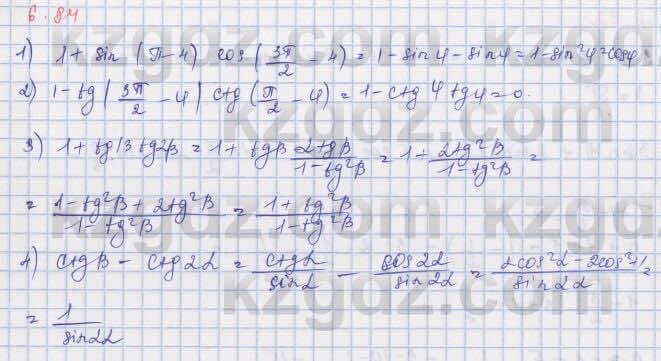 6.84
1) 1 + sin (π - 4) cos (3π/2 - 4) = 1 - sin 4 - sin 4 = 1 - sin² 4 = cos 4
2) 1 - tg (3π/2 - 4) ctg (π/2 - 4) = 1 - ctg 4 tg 4 = 0.
3) 1 + tgβ tg2β = 1 + tgβ 2tgβ/1-tg²β = 1 + 2tg²β/1-tg²β =
= 1-tg²β+2tg²β/1-tg²β = 1+tg²β/1-tg²β
4) ctgβ - ctg2α = ctgα/sinα - cos2α/sin2α = 2cos²α-2cos²+1/sin2α =
= 1/sin2α
kzgdz.com